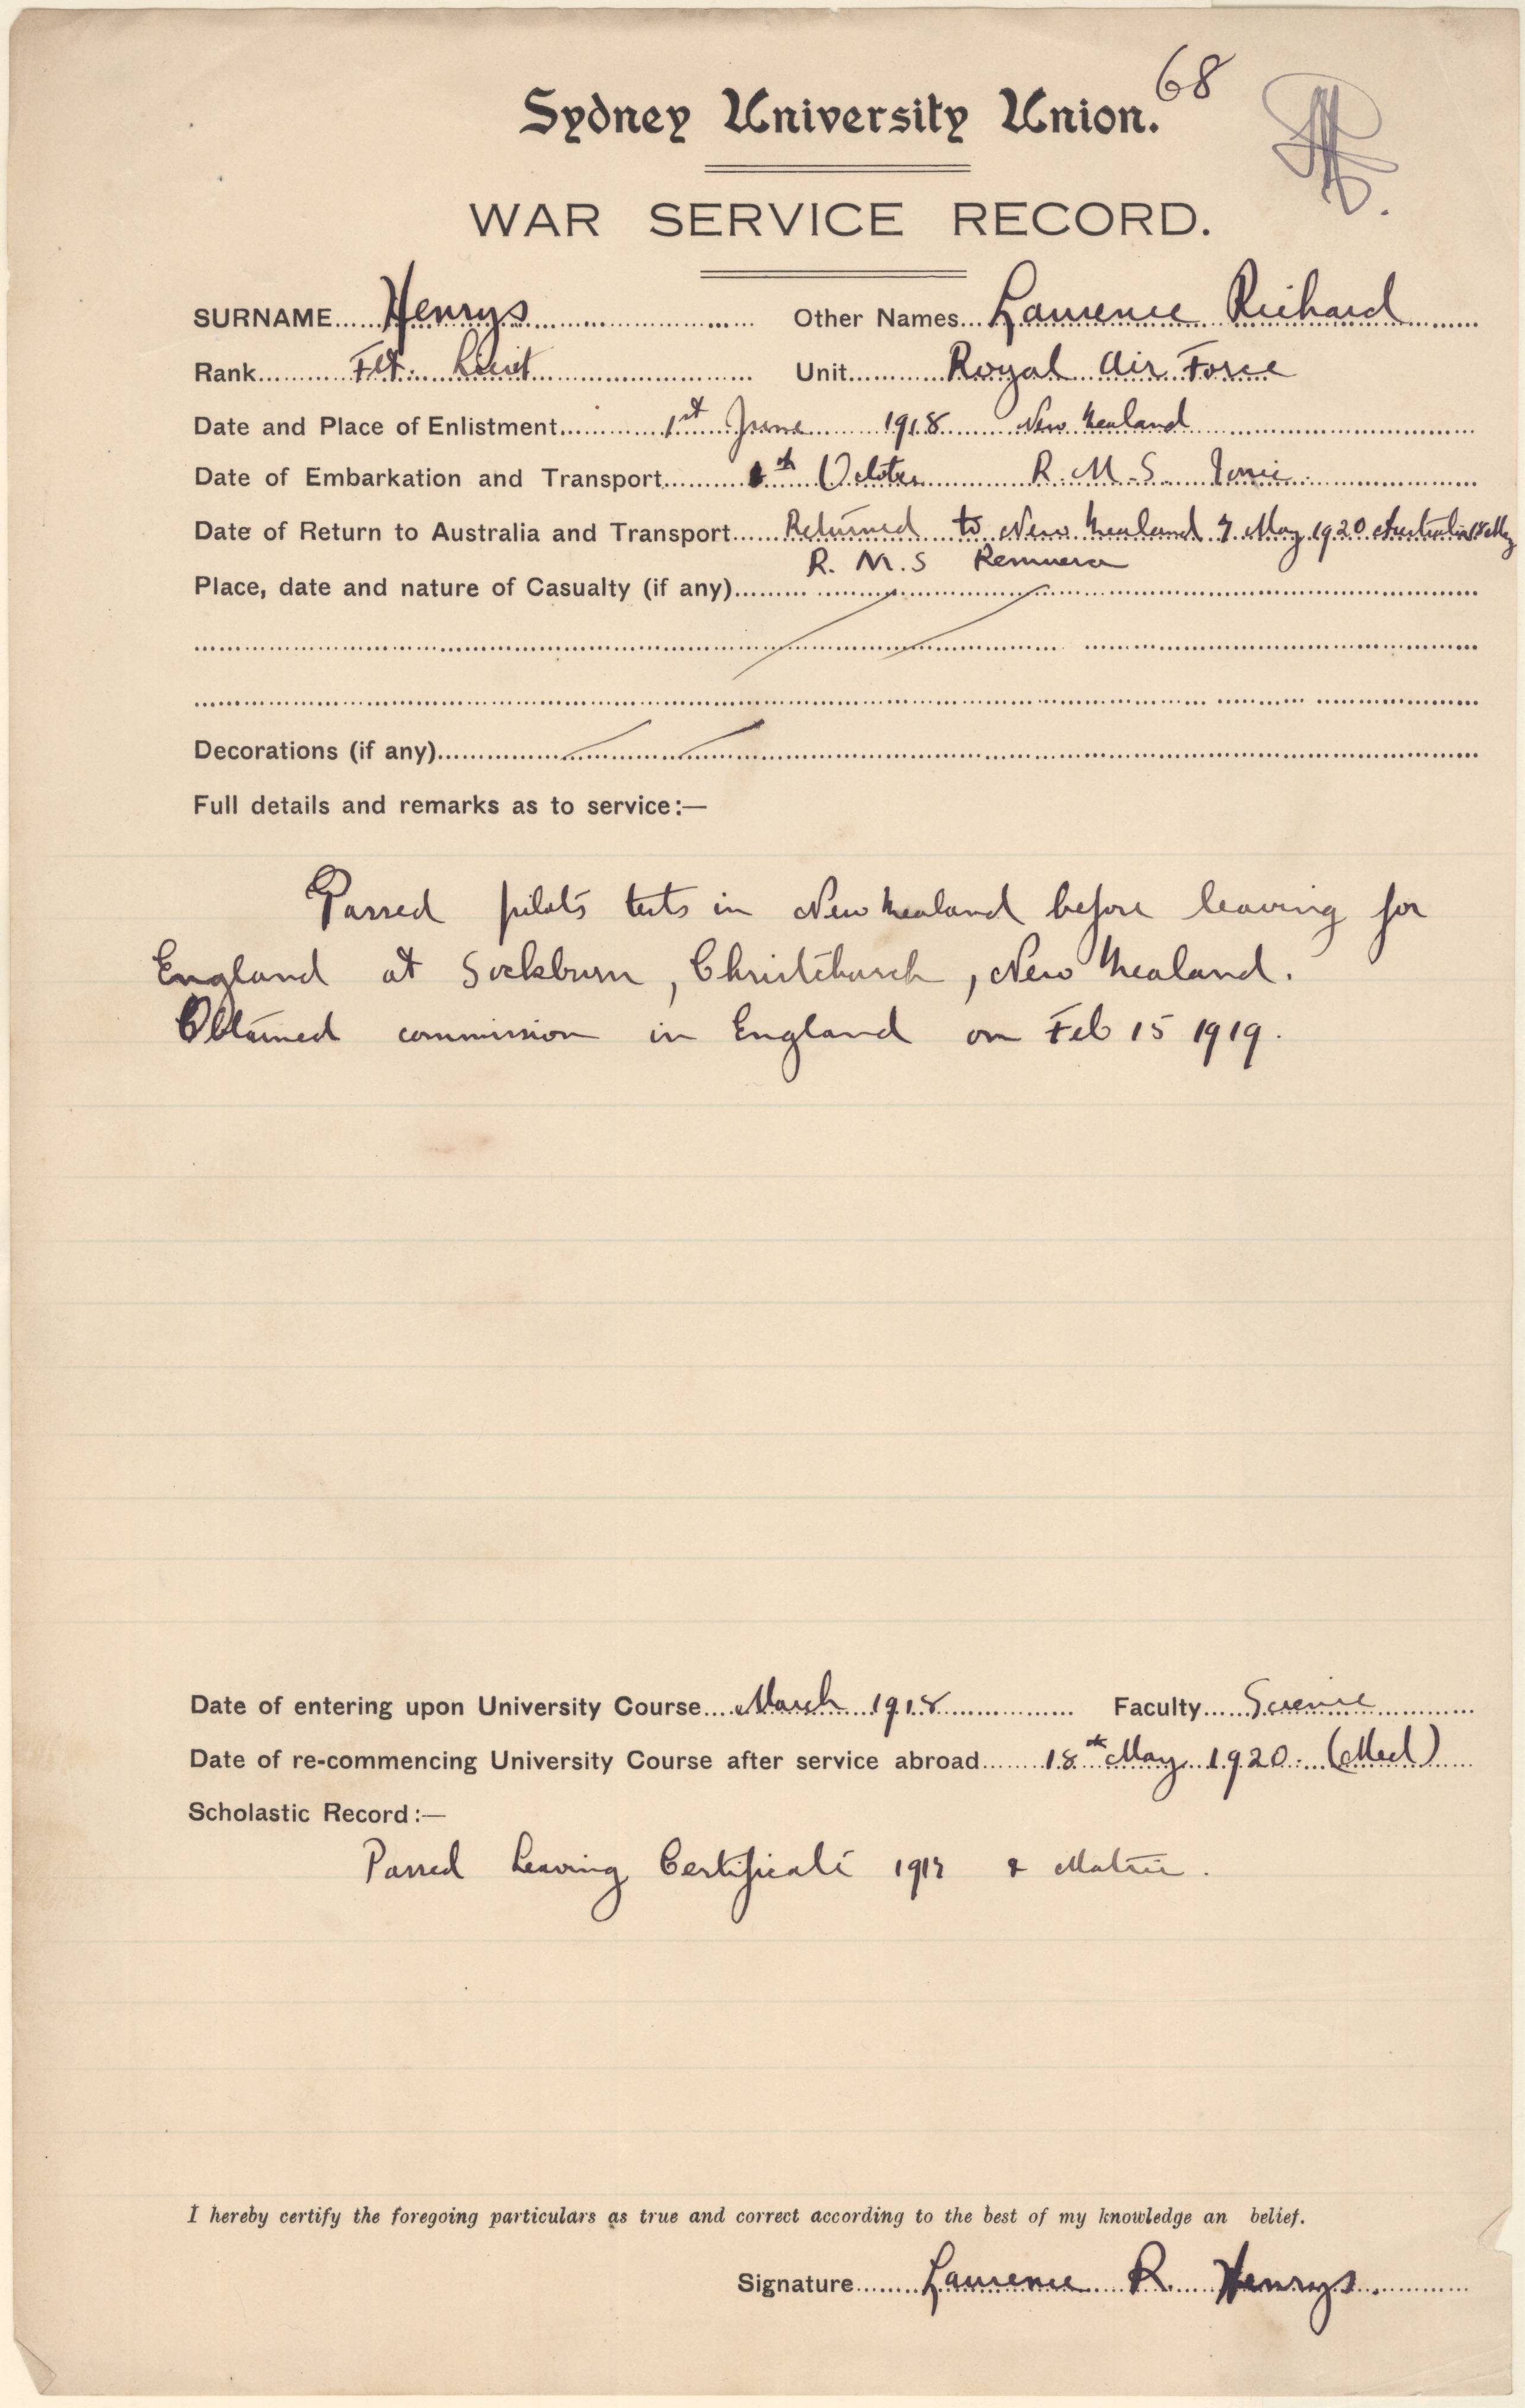 68
Sydney University Union.
WAR SERVICE RECORD.
SURNAME Henrys Other Names Laurence Richard
Rank Flt. Lieut Unit Royal Air Force
Date and Place of Enlistment 1st June 1918 New Zealand
Date of Embarkation and Transport October R. M. S. Ionic
Date of Return to Australia and Transport Returned to New Zealand 7 May 1920 Australia 18 May
R. M. S Remuera
Place, date and nature of Casualty (if any)
Decorations (if any)
Full details and remarks as to service:—
Passed pilots tests in New Zealand before leaving for
England at Sockburn, Christchurch, New Zealand.
Obtained commission in England on Feb 15 1919.
Date of entering upon University Course March 1918 Faculty Science
Date of re-commencing University Course after service abroad 18th May 1920. (Med)
Scholastic Record:—
Passed Leaving Certificate & Matric.
I hereby certify the foregoing particulars as true and correct according to the best of my knowledge an belief.
Signature Laurence R. Henrys.